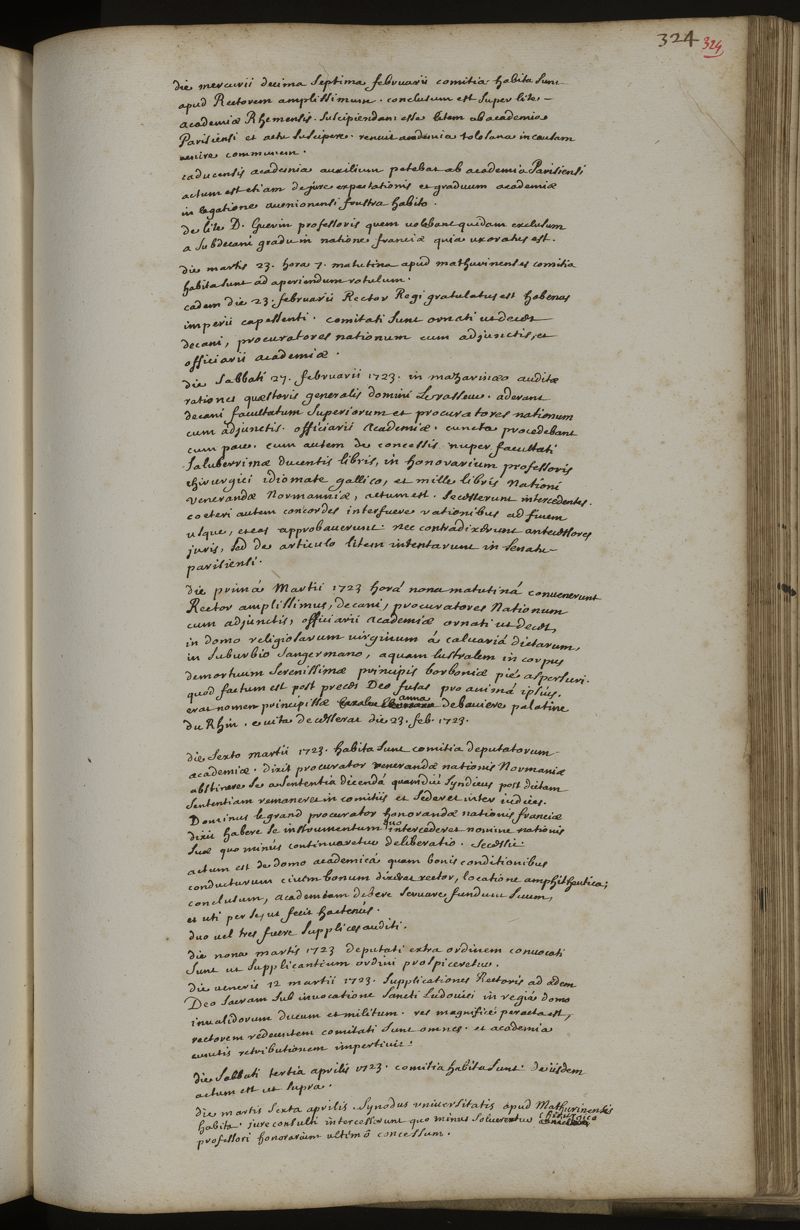 324 324
die mercurii decima septima februarii comitia habita sunt
apud Rectorem amplissimum. conclusum est super lite
academiæ Rhemensis. suscipiendam esse litem ab academia
Parisiensi et actu suscipere. renuit academia tolosana in causam
venire communem.
caducensis academia auxilium petebat ab academia Parisiensi
actum est etiam de jure expectationis et graduum academiæ
in legatione avenionensi frustra habito.
de lite D. Guerin professoris quem volebant quidam exclusum
a subdecani gradu in natione franciæ quia uxoratus est.
die martis 23. hora 7. matutina apud mathurinenses comitia
habita sunt ad aperiendum rotulum.
eadem die 23. februarii Rector Regi gratulatus est habenas
imperii capessenti. comitati sunt ornati ut decet
decani, procuratores nationum cum adjunctis, et
officiarii academiæ.
die sabbati 27. februarii 1723. in mazarinæo auditæ
rationes quæstoris generalis domini Levasseur. aderant
decani facultatum superiorum et procuratores nationum
cum adjunctis. officiarii Academiæ. cuncta procedebant
cum pace. cum autem de concessis nuper facultati
saluberrimæ ducentis libris, in honorarium professoris
chirurgici idiomate gallico, et mille libris nationi
venerandæ Normanniæ, actum est. secesserunt intercedentes.
cœteri autem concordes interfuere rationibus ad finem
usque, et eas approbaverunt. nec contradixerunt antecessores
juris, sed de articulo litem intentarunt in senatu
parisiensi.
die primâ Martii 1723 horâ nona matutinâ convenerunt
Rector amplissimus, decani, procuratores Nationum
cum adjunctis, officiarii Academiæ ornati ut decet,
in domo religiosarum virginum â calvariâ dictarum,
in suburbio sangermano, aquam lustralem in corpus
demortuum serenissimæ principis borboniæ pié aspersuri.
quod factum est post preces Deo fusas pro animâ ipsius.
erat nomen principissæ anna de baviere palatine
du Rhin. e vita decesserat die 23. feb. 1723.
die sexto martii 1723. habita sunt comitia deputatorum
academiæ. dixit procurator venerandæ nationis Normaniæ
abstinere se a sententia dicendâ quamdiù syndicus post dictam
sententiam remaneret in comitiis et sederet inter judices.
Dominus legrand procurator honorandæ nationis franciæ
dixit habere se instrumentum quo intercederet nomine nationis
suæ quo minùs continuaretur deliberatio. secessit.
actum est de domo academicâ quam bonis conditionibus
conducturum civem bonum dixerat rector, locatione amphitheutica;
conclusum, academiam debere servare fundum suum,
et uti per se, ut fecit hactenùs.
duo vel tres fuere supplices auditi.
die nona martis 1723 deputati extra ordinem convocati
sunt ut supplicantium ordini prospiceretur.
die veneris 12 martii 1723. supplicationes Rectoris ad ædem
Deo sacram sub invocatione sancti Ludovici in regiâ domo
invalidorum ducum et militum. res magnificè peracta est,
rectorem redeuntem comitati sunt omnes. et academia
cunctis retributionem impertivit.
die sabbati tertia aprilis 1723. comitia habita sunt. de iisdem
actum est ut supra.
die martis sexta aprilis. synodus universitatis apud Mathurinenses
habita. jureconsulti intercesserunt quo minus solveretur chirurgico
professori honorarium ultimò concessum.